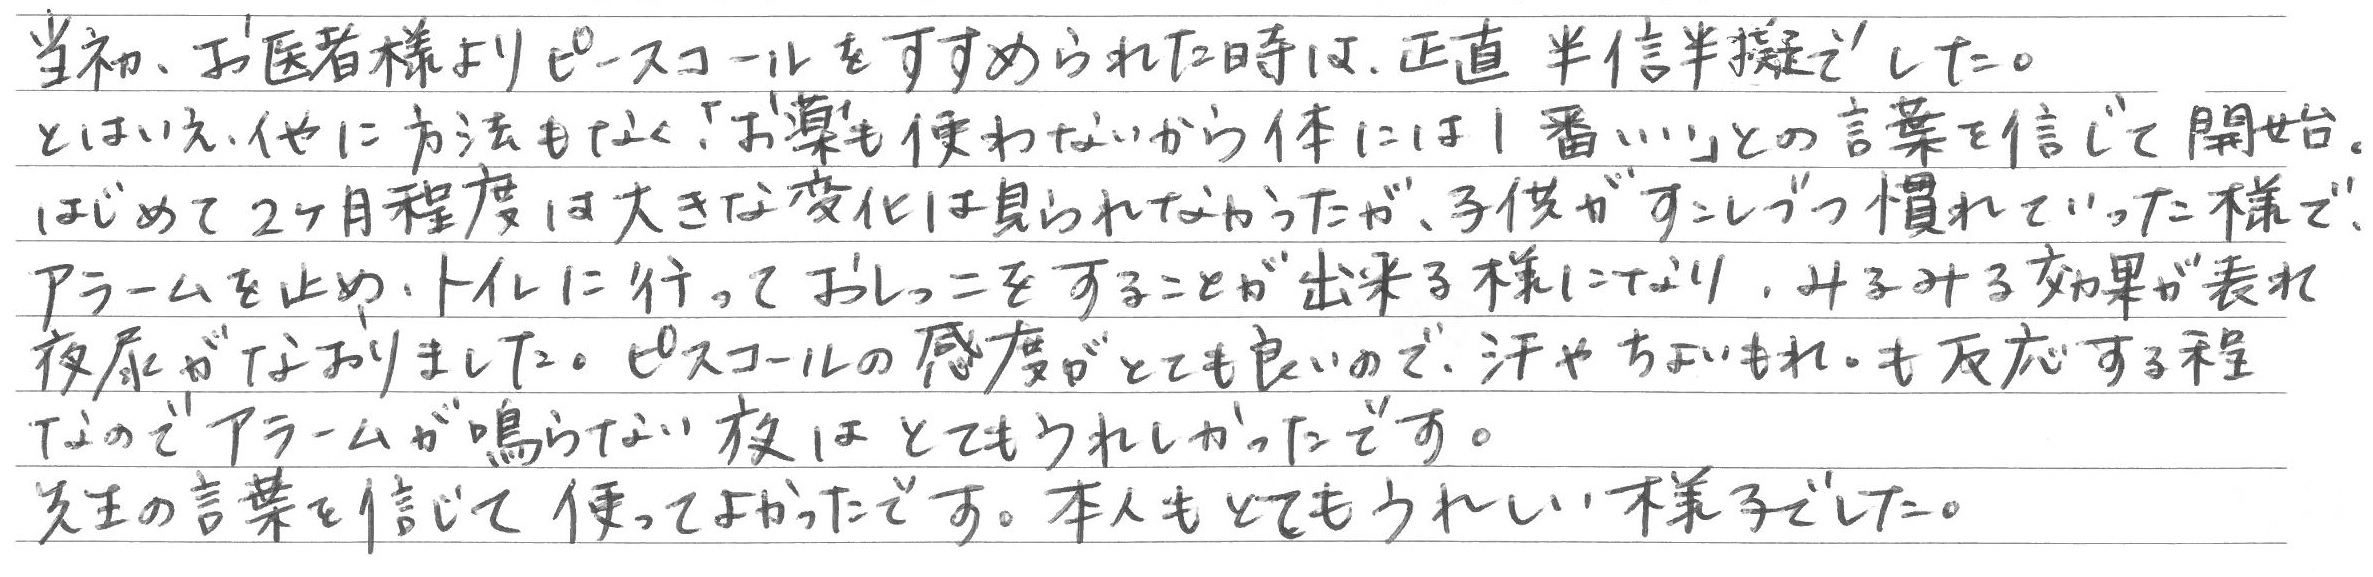 当初、お医者様よりピースコールをすすめられた時は、正直 半信半擬でした。
とはいえ、他に方法もなく、「お薬も使わないから体には1番いい」との言葉を信じて開始。
はじめて2ヶ月程度は大きな変化は見られなかったが、子供がすこしづつ慣れていった様で、
アラームを止め、トイレに行っておしっこをすることが出来る様になり、みるみる効果が表れ
夜尿がなおりました。ピスコールの感度がとても良いので、汗やちょいもれ。も反応する程
なのでアラームが鳴らない夜はとてもうれしかったです。
先生の言葉を信じて使ってよかったです。本人もとてもうれしい様子でした。